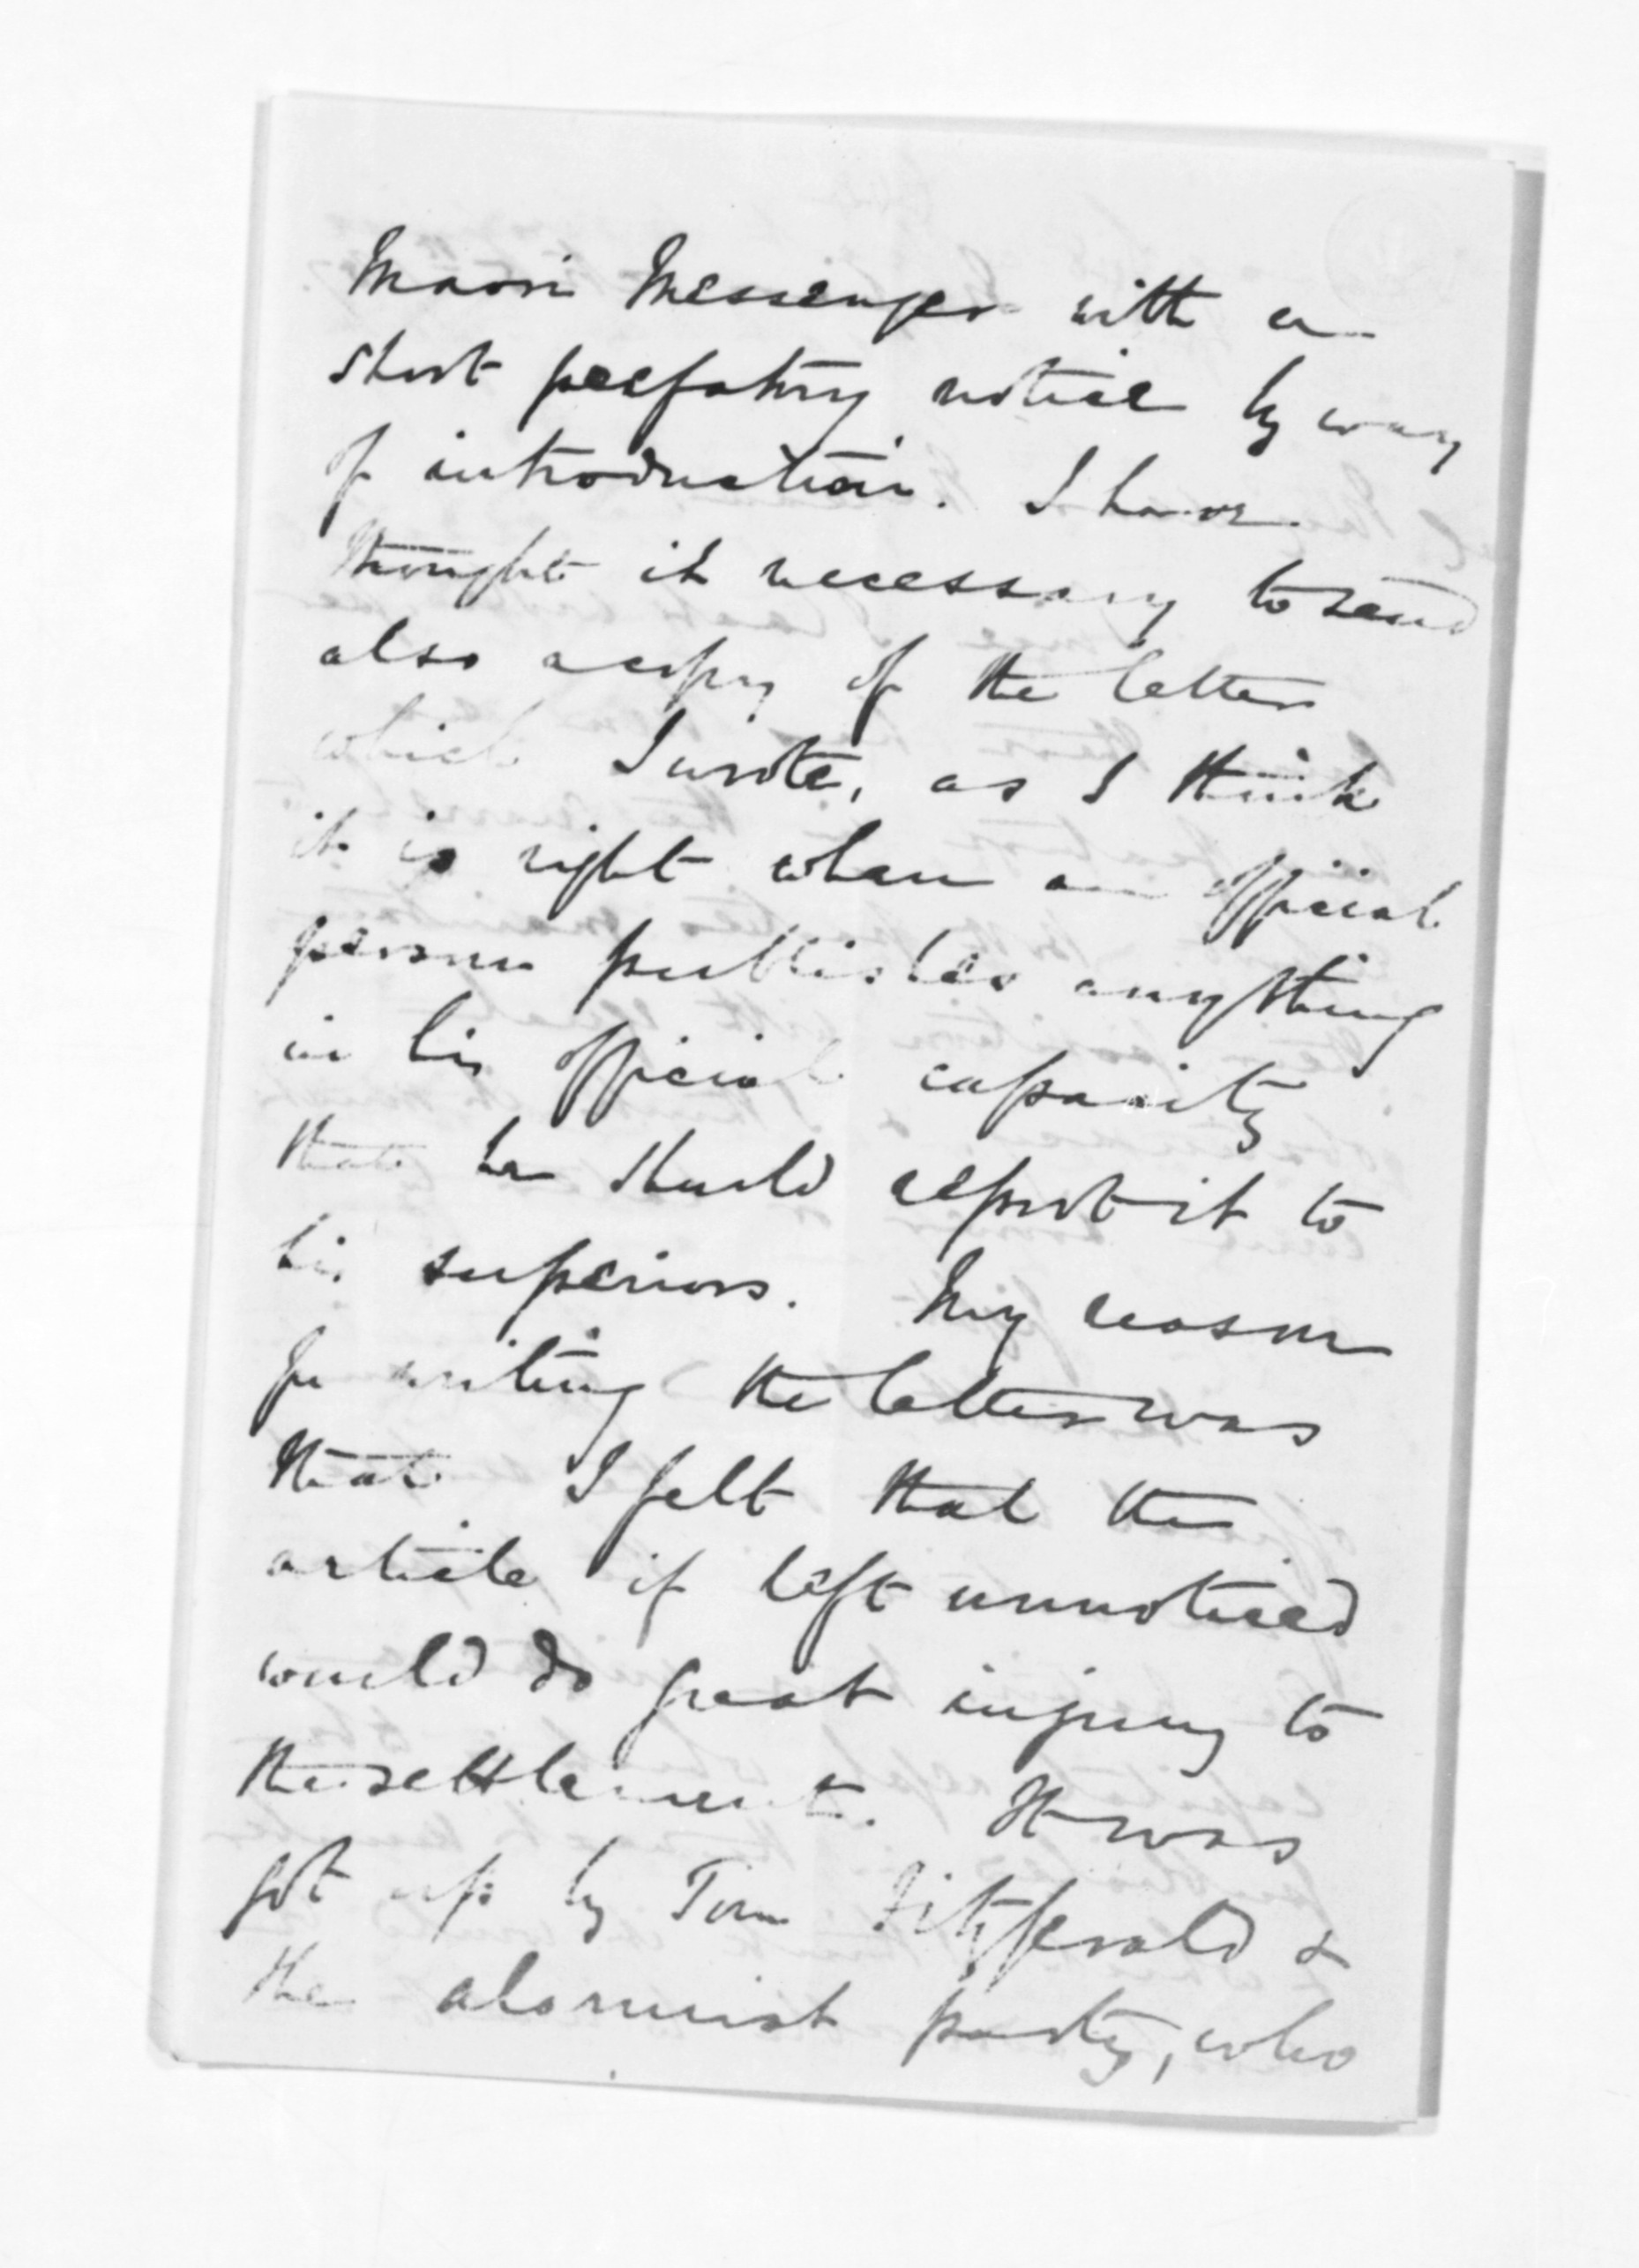 Maori Messenger with a
short prefatory notice by way
of introduction. I have
thought it necessary to send
also a copy of the letter
which I wrote, as I think
it is right when an official
person publishes anything
in his official capacity
that he should report it to
his superiors. My reason
for writing the letter was
that I felt that the
article if left unnoticed
would do great injury to
the settlement. It was
got up by Tom Fitzgerald &
the alarmist party, who